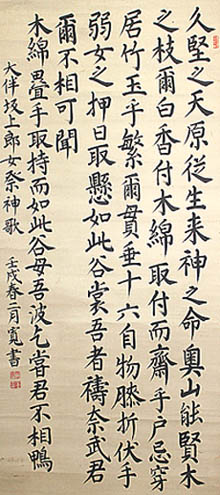 久堅之天原従生来神之命奥山能賢木
之枝爾白香付木綿取付而齋乎戸忌穿
居竹玉乎繁爾貫垂十六自物膝折伏手
弱女之押日取懸如此谷裳吾者禱奈武君
爾不相可聞
木綿疊手取持而如此谷母吾波乞甞君不相鴨
大伴坂上郎女祭神歌 壬戌春 寛書